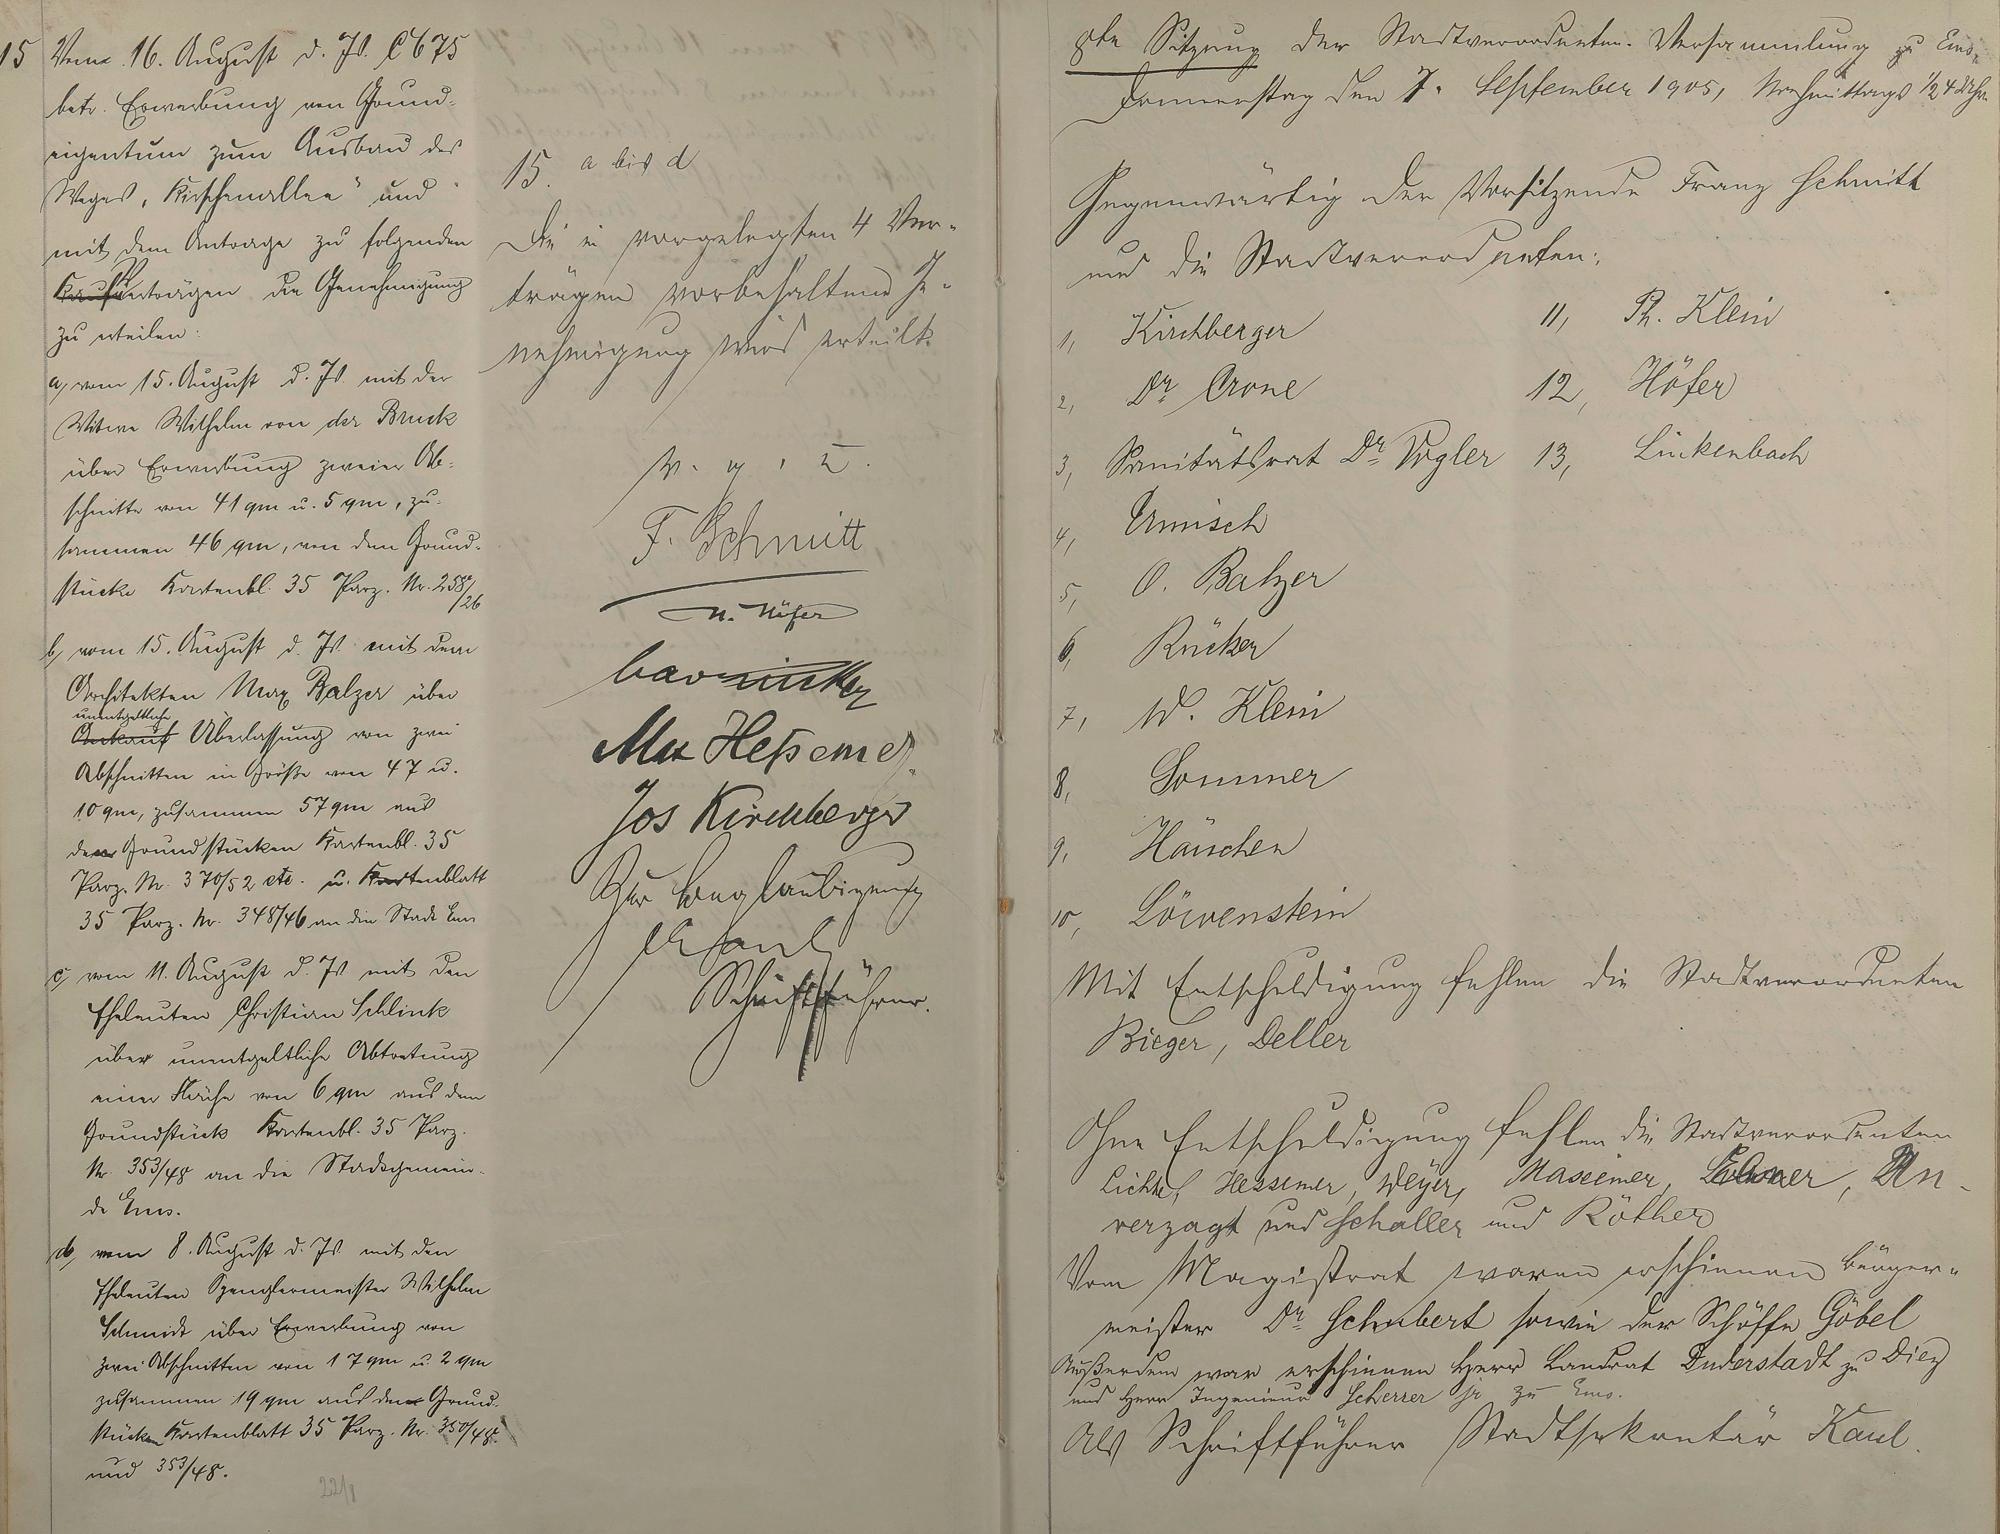 15 Vom 16. August d. Js. C 675
betr. Erwerbung von Grund-
eigentum zum Ausbau des
Weges „Kirschenallee" und
mit dem Antrage zu folgenden
Kaufverträgen die Genehmigung
zu erteilen:
a, vom 15. August d. Js. mit der
Witwe Wilhelm von der Bruck
über Erwerbung zweier Ab-
schnitte von 41 qm u. 5 qm, zu-
sammen 46 qm, von dem Grund-
stücke Kartenbl. 35 Parz. Nr. 258/26
b, vom 15. August d. Js. mit dem
Architekten Max Balzer über
unentgeltliche
Ankauf Überlassung von zwei
Abschnitten in Größe von 47 u.
10 qm, zusammen 57 qm aus
den Grundstücken Kartenbl. 35
Parz. Nr. 370/52 etc. u. Kartenblatt
35 Parz. Nr. 348/46 an die Stadt Ems
c, vom 11. August d. Js. mit den
Eheleuten Christian Schlink
über unentgeltliche Abtretung
einer Fläche von 6 qm aus dem
Grundstück Kartenbl. 35 Parz.
Nr. 353/48 an die Stadtgemein-
de Ems.
d, vom 8. August d. Js. mit den
Eheleuten Spenglermeister Wilhelm
Schmidt über Erwerbung von
zwei Abschnitten von 17 qm u. 2 qm
zusammen 19 qm aus den Grund-
stücken Kartenblatt 35 Parz. Nr. 350/48
und 353/48.
22/1
15. a bis d
Die in vorgelegten 4 Ver-
trägen vorbehaltene Ge-
nehmigung wird erteilt.
v. g. u.
F. Schmitt
Höfer
Max Hessemer
Jos Kirchberger
Zur Beglaubigung
Kaul
Schriftführer.
8te Sitzung der Stadtverordneten-Versammlung zu Ems,
Donnerstag den 7. September 1905, Nachmittags 1/2 4 Uhr.
Gegenwärtig der Vorsitzende Franz Schmitt
und die Stadtverordneten:
1, Kirchberger
2, Dr Crone
3, Sanitätsrat Dr Vogler
4, Urmisch
5, O. Balzer
6, Rücker
7, W. Klein
8, Sommer
9, Häuschen
10, Löwenstein
11, Ph. Klein
12, Höfer
13, Linkenbach
Mit Entschuldigung fehlen die Stadtverordneten
Bieger, Deller
Ohne Entschuldigung fehlen die Stadtverordneten
Licht, Hessemer, Weyer, Massemer, Un-
verzagt und Schaller und Röther
Vom Magistrat waren erschienen Bürger-
meister Dr Schubert sowie der Schöffe Göbel
Außerdem war erschienen Herr Landrat Duderstadt zu Diez
und Herr Ingenieur Scherrer jr zu Ems.
Als Schriftführer Stadtsekretär Kaul.